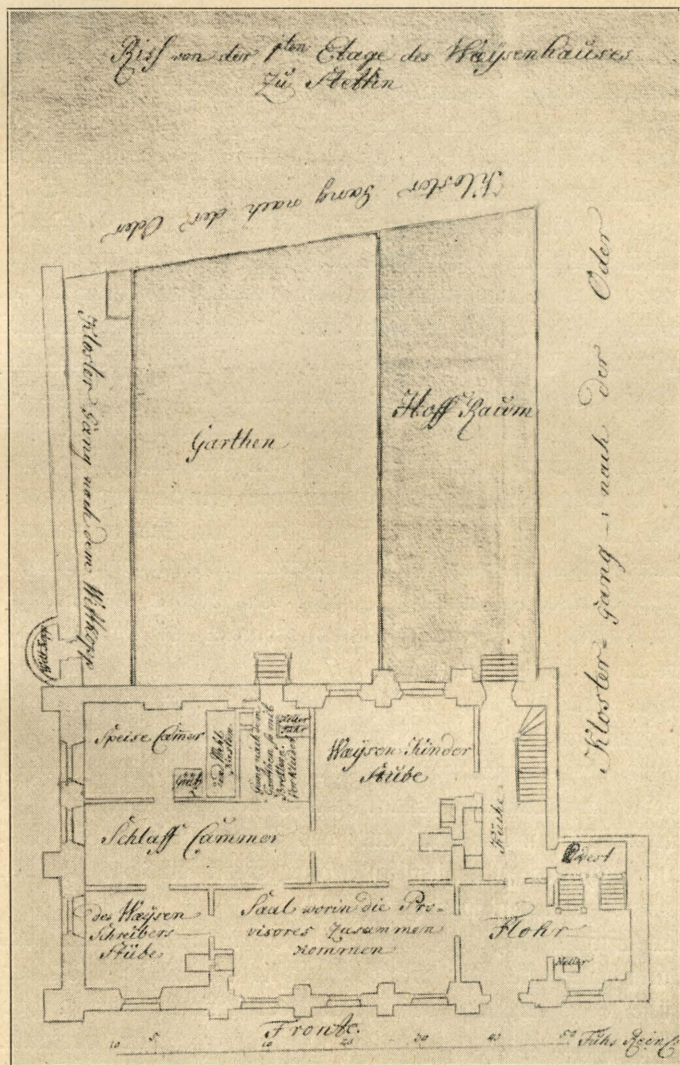 Riss von der 1ten Etage des Waÿsenhauses
Zu Stettin
Kloster Gang nach der Oder
Kloster Gang nach dem
Garthen
Hoff Raum
Kloster Gang nach der Oder
Speise Camer
Gang nach dem
Garthen so mit
Brettern
Verkleidet
Keller
Waÿsen Kinder
Stube
Schlaff Cammer
Küche
des Waÿsen
Schreibers
Stübe
Saal worin die Pro-
visores Zusammen
kommen
Flohr
Keller
Fronte.
10 5 10 20 30 40 50 Fuhs